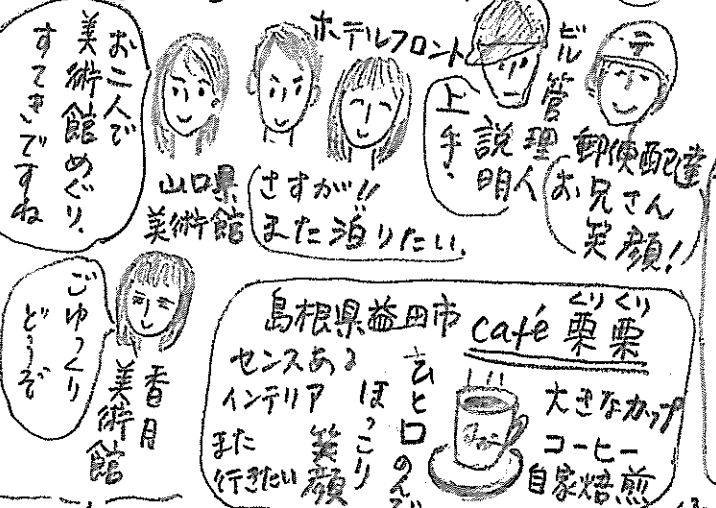 お二人で
美術館めぐり、
すてきですね
山口県
美術館
ホテルフロント
さすが!!
また泊りたい。
ビル管理人
説明
上手。
テ
郵便配達
お兄さん
笑顔!
ごゆっくり
どうぞ
香月
美術館
島根県益田市
café 栗栗
くりくり
センスある
インテリア
また
行きたい
笑顔
ほっこり
ひと口のんで
大きなカップ
コーヒー
自家焙煎